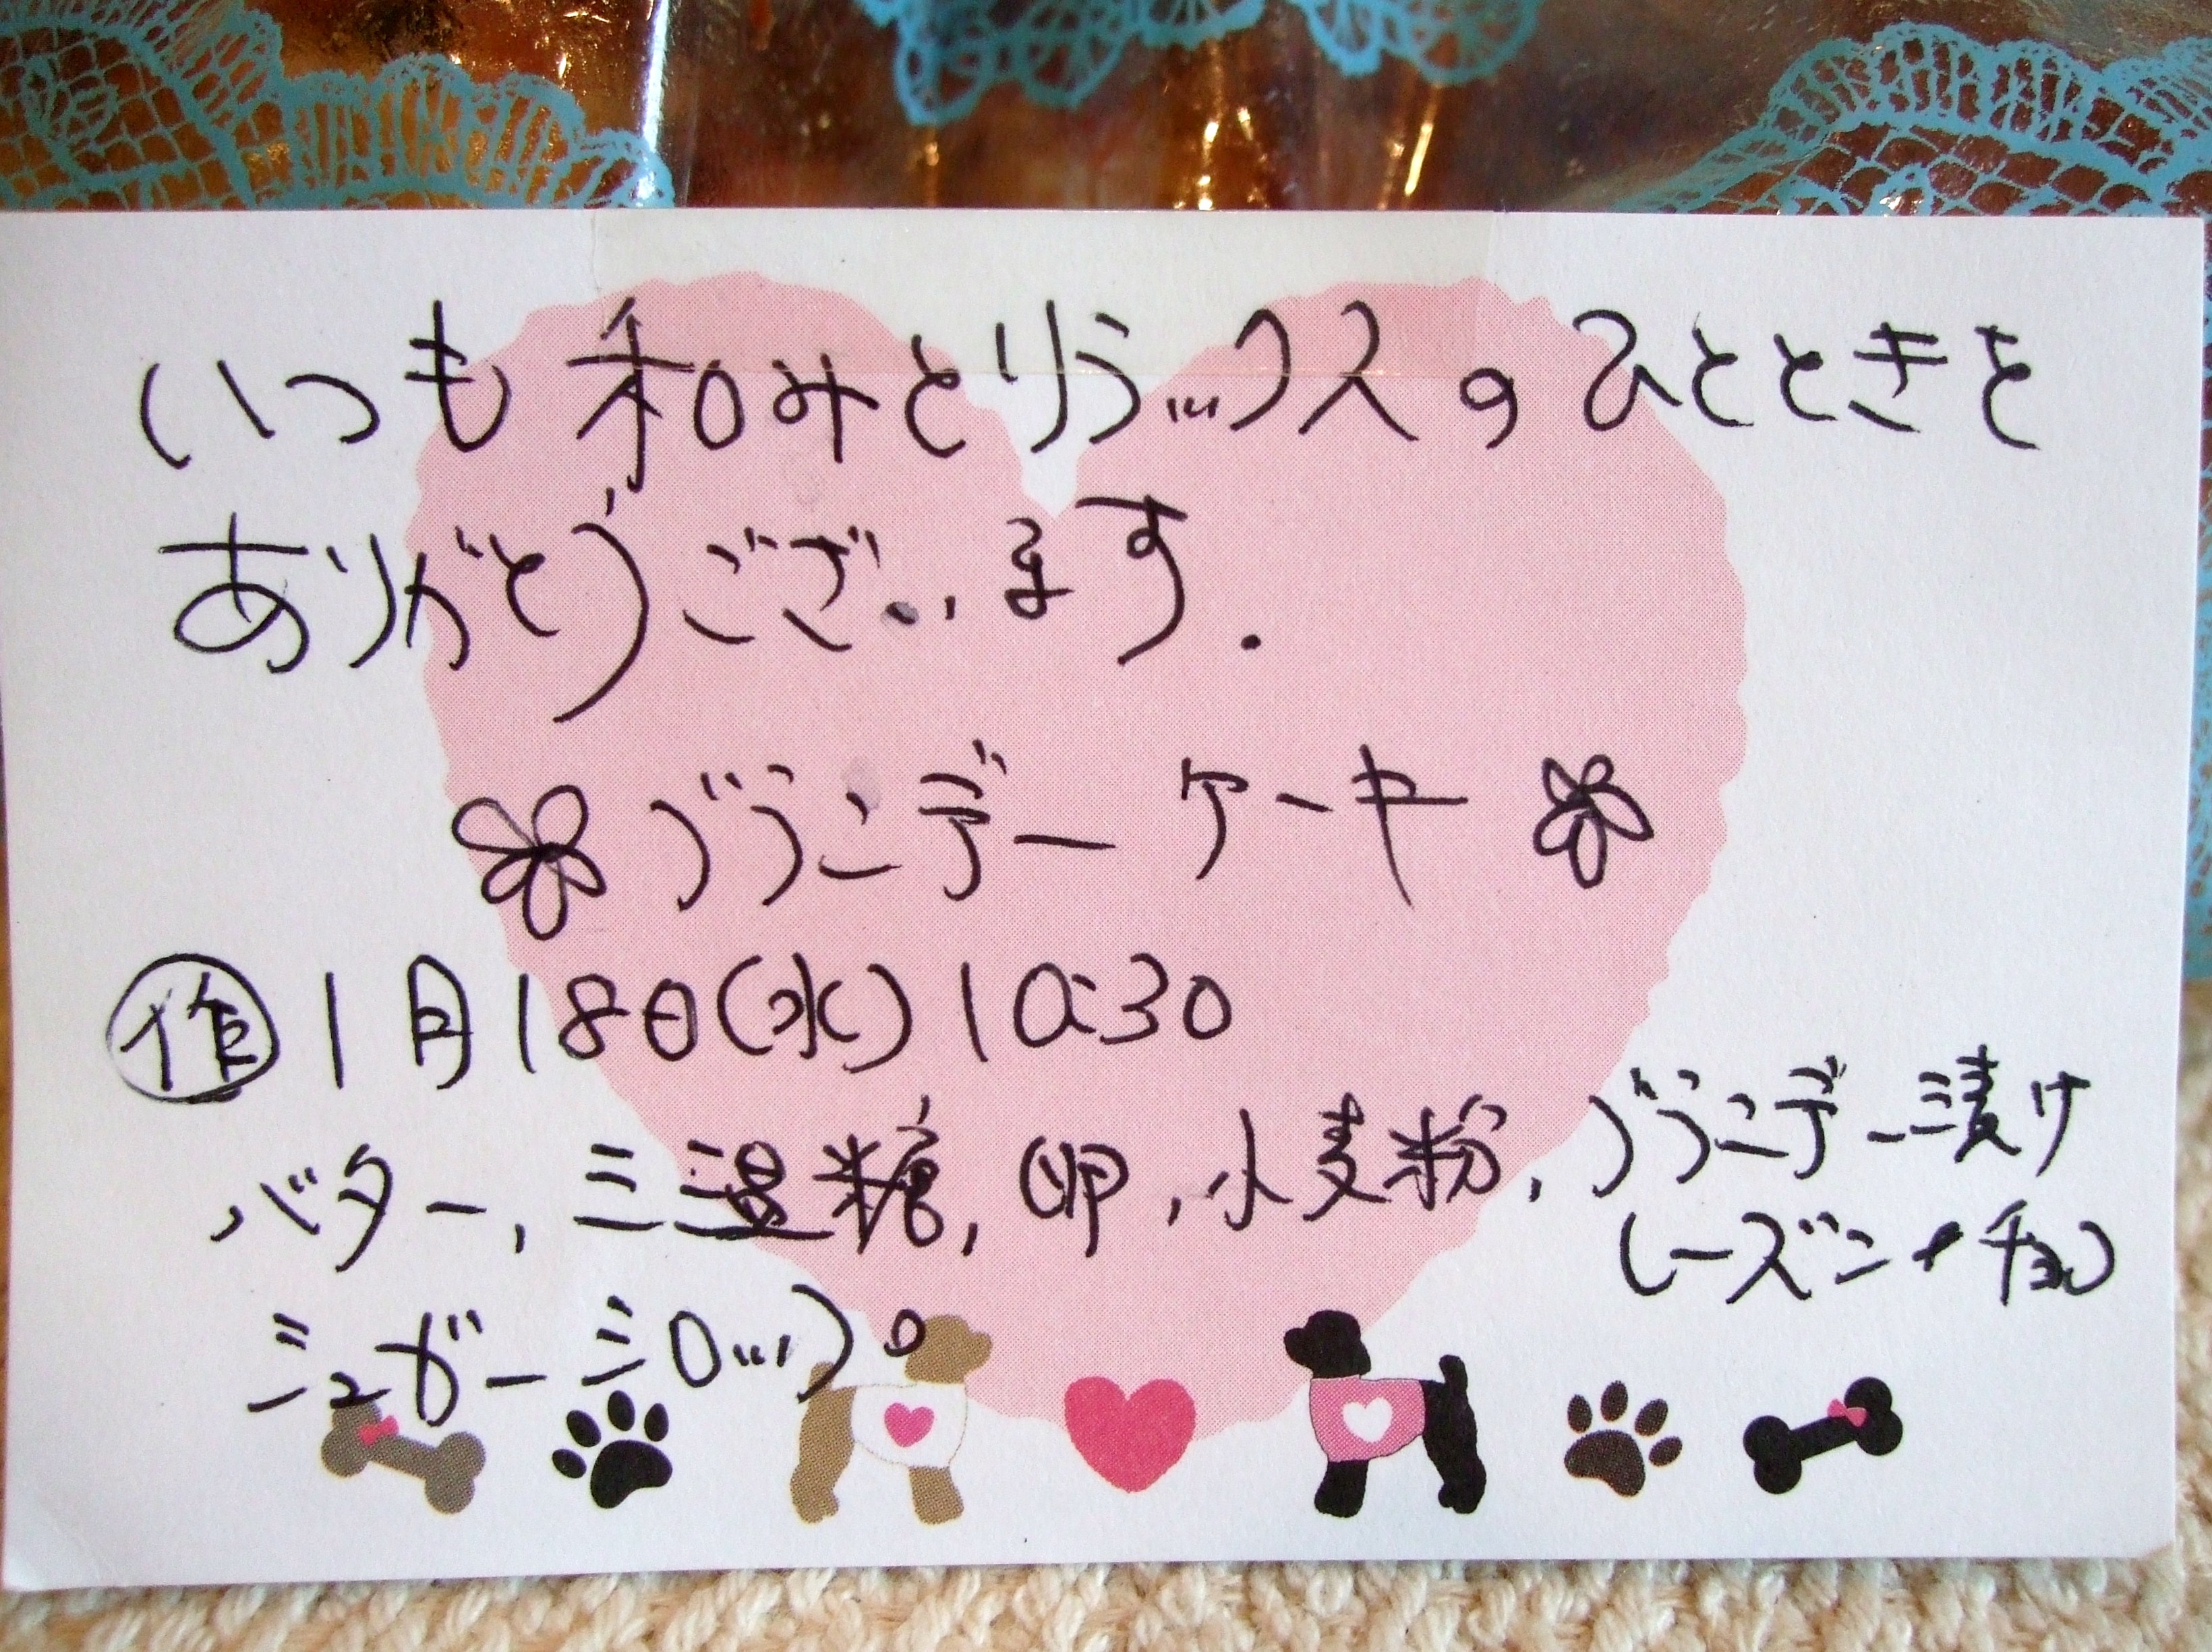 いつも 和みとリラックスのひとときを
ありがとうございます.
ブランデーケーキ
作 1月18日(水) 10:30
バター, 三温糖, 卵, 小麦粉, ブランデー漬け
レーズン
シュガーシロップ。